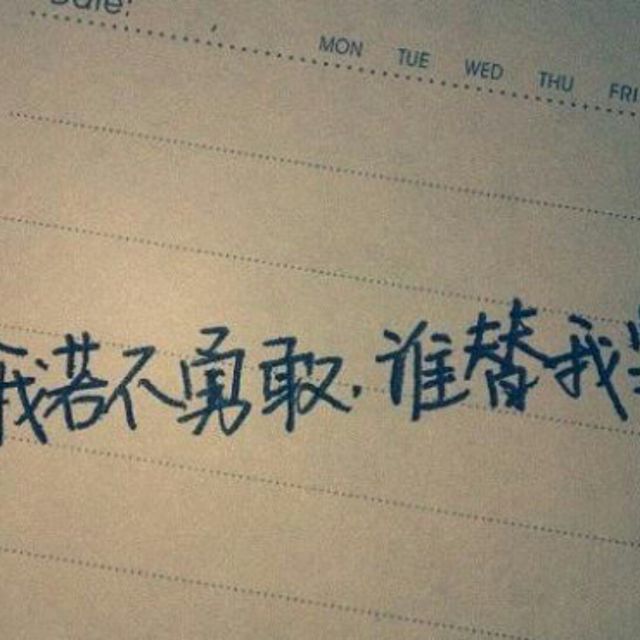 Date:
MON TUE WED THU FRI
我若不勇敢,谁替我